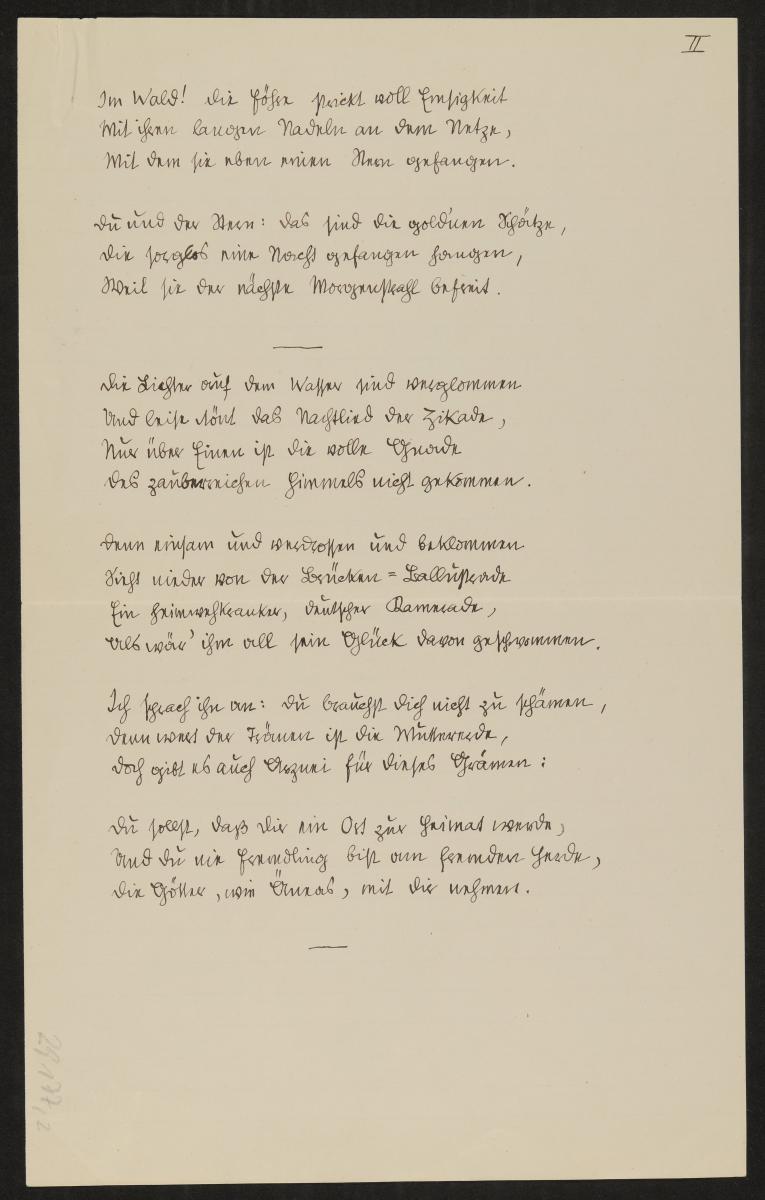 II
Im Wald! die Föhre strickt voll Emsigkeit
Mit ihren langen Nadeln an dem Netze,
Mit dem sie eben einen Stern gefangen.
Du und der Stern: das sind die gold'nen Schätze,
Die sorglos eine Nacht gefangen hangen,
Weil sie der nächste Morgenstrahl befreit.
Die Lichter auf dem Wasser sind verglommen
Und leise tönt das Nachtlied der Zikade,
Nur über Einen ist die volle Gnade
Des zauberreichen Himmels nicht gekommen.
Denn einsam und verdrossen und beklommen
Sieht nieder von der Brücken=Ballustrade
Ein heimwehkranker, deutscher Kamerade,
Als wär' ihm all sein Glück davon geschwommen.
Ich sprach ihn an: du brauchst dich nicht zu schämen,
Denn wert der Tränen ist die Muttererde,
Doch gibt es auch Arznei für dieses Grämen:
Du sollst, daß dir ein Ort zur Heimat werde,
Und du nie Fremdling bist am fremden Herde,
Die Götter, wie Äneas, mit dir nehmen.